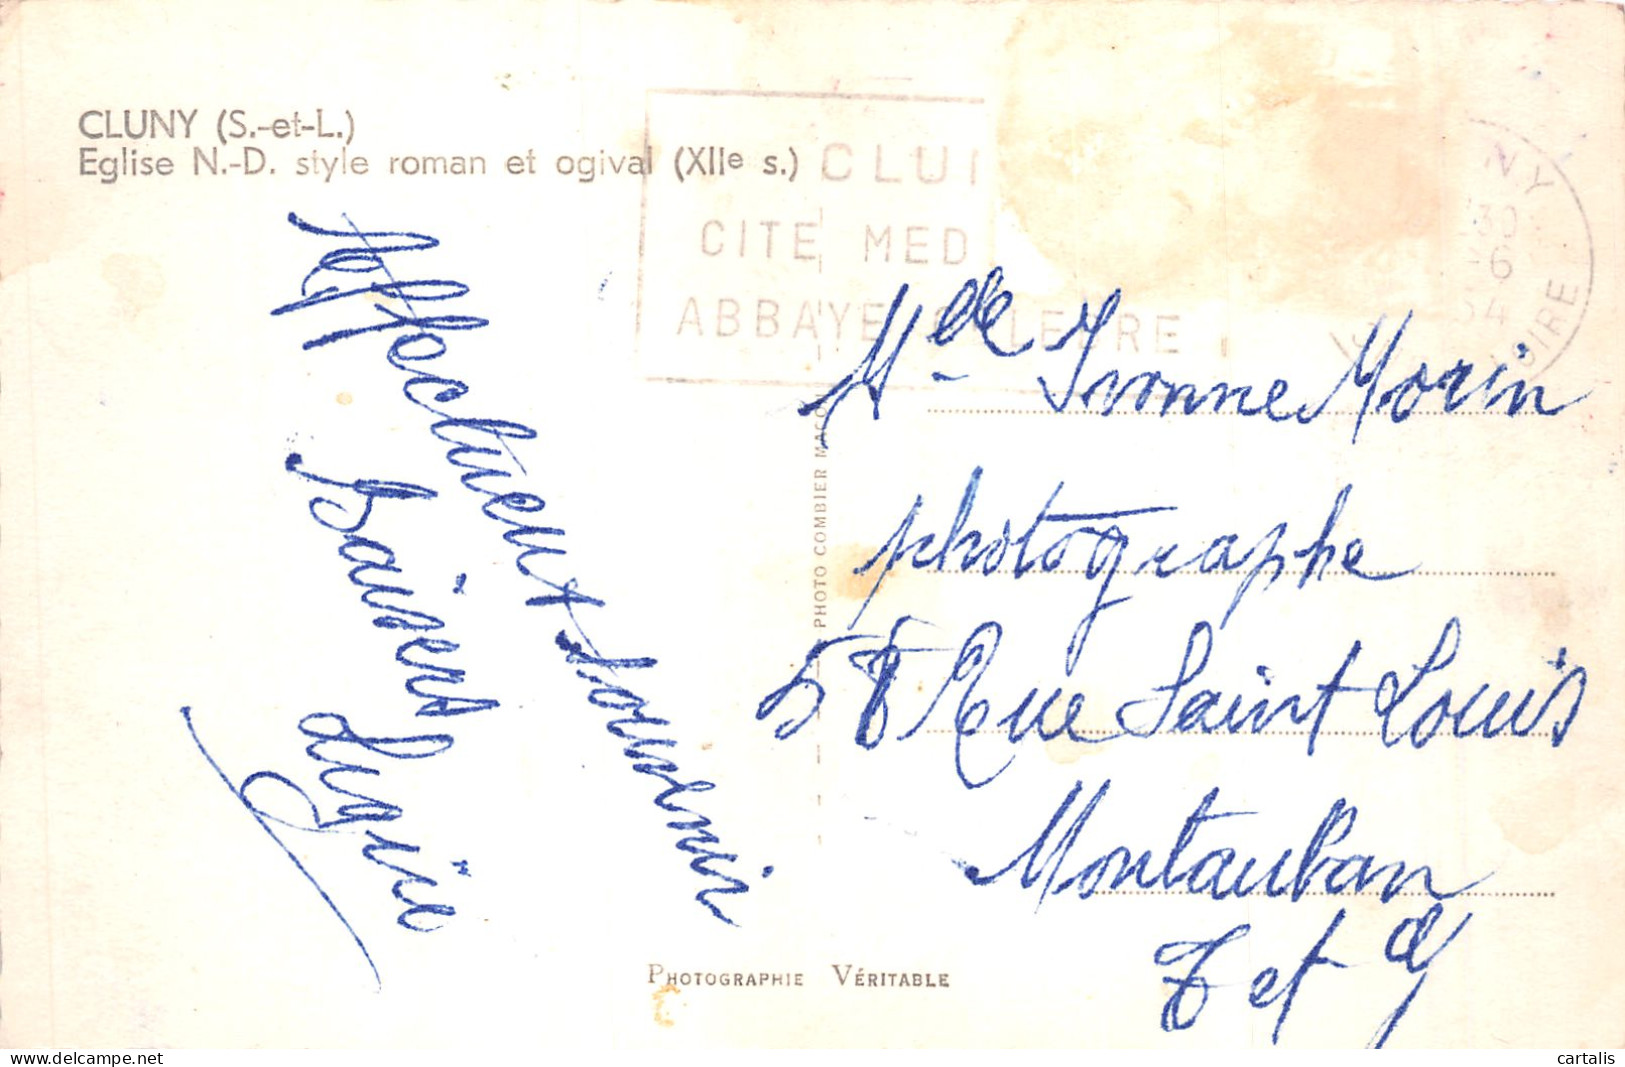 CLUNY (S.-et-L.)
Eglise N.-D. style roman et ogival (XIIe s.)
CLU
CITE MED
ABBAYE
NY
30
6
LOIRE
Affectueux Souvenir
Baisers
PHOTO COMBIER MACON
Mde Yvonne Morin
photographe
Rue Saint Louis
Montauban
T et G
PHOTOGRAPHIE VÉRITABLE
cartalis